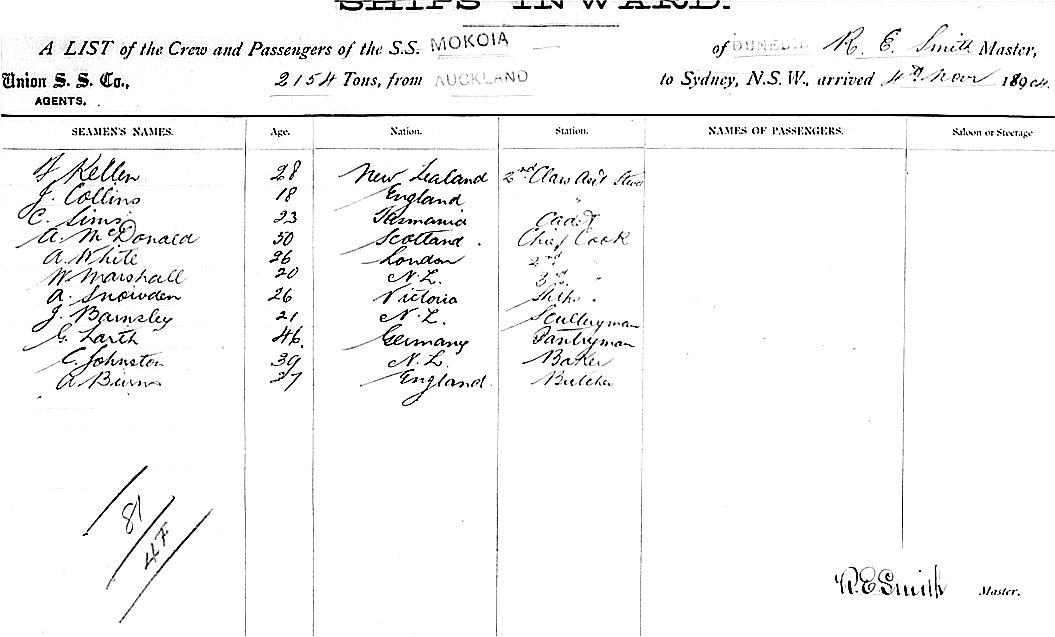 SHIPS INWARD.
A LIST of the Crew and Passengers of the S.S. MOKOIA of DUNEDIN R. E. Smith Master,
Union S. S. Co., 2154 Tons, from AUCKLAND to Sydney, N.S.W., arrived 4th Nov 1890
AGENTS.
SEAMEN'S NAMES. Age. Nation. Station. NAMES OF PASSENGERS. Saloon or Steerage
Kellen 28 New Zealand 2nd Class
J. Collins 18 England "
C. Sims 23 Tasmania Cadet
A. McDonald 50 Scotland . Chief Cook
A. White 26 London 2nd "
W. Marshall 20 N. Z. 3rd "
A. Snowden 26 Victoria "
J. Barnsley 21 N. Z. Sculleryman
G. Larth 46. Germany Pantryman
C. Johnston 39 N. Z. Baker
A Burns 37 England. Butcher
81
R.E. Smith Master.